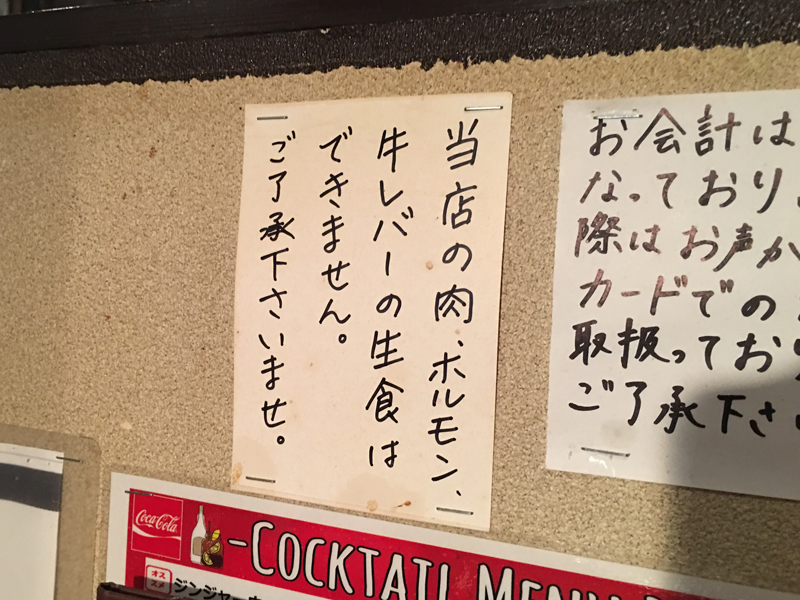 当店の肉、ホルモン、
牛レバーの生食は
できません。
ご了承下さいませ。
お会計は
なっており
際はお声か
カードでの
取扱ってお
ご了承下さ
Coca-Cola
-COCKTAIL MENU
オススメ
ジンジャー